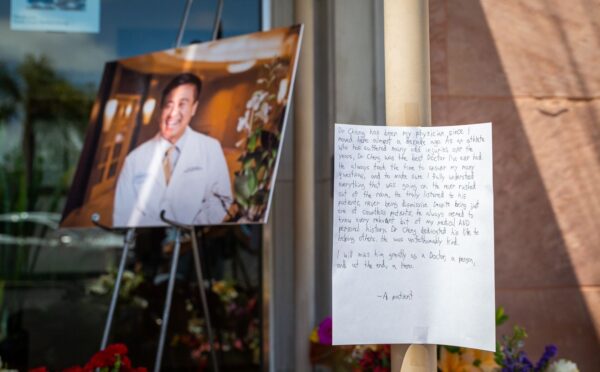 Dr Cheng has been my physician since I
moved here almost a decade ago. As an athlete
who has suffered many odd injuries over the
years, Dr Cheng was the best Doctor I've ever had.
He always took the time to answer my many
questions, and to make sure I fully understood
everything that was going on. He never rushed
out of the room. He truly listened to his
patients, never being dismissive. Despite being just
one of countless patients, he always seemed to
know every minutest bit of my medical AND
personal history. Dr Cheng dedicated his life to
helping others. He was unfathomably kind.
I will miss him greatly as a Doctor, a person,
and at the end, a hero.
- A patient